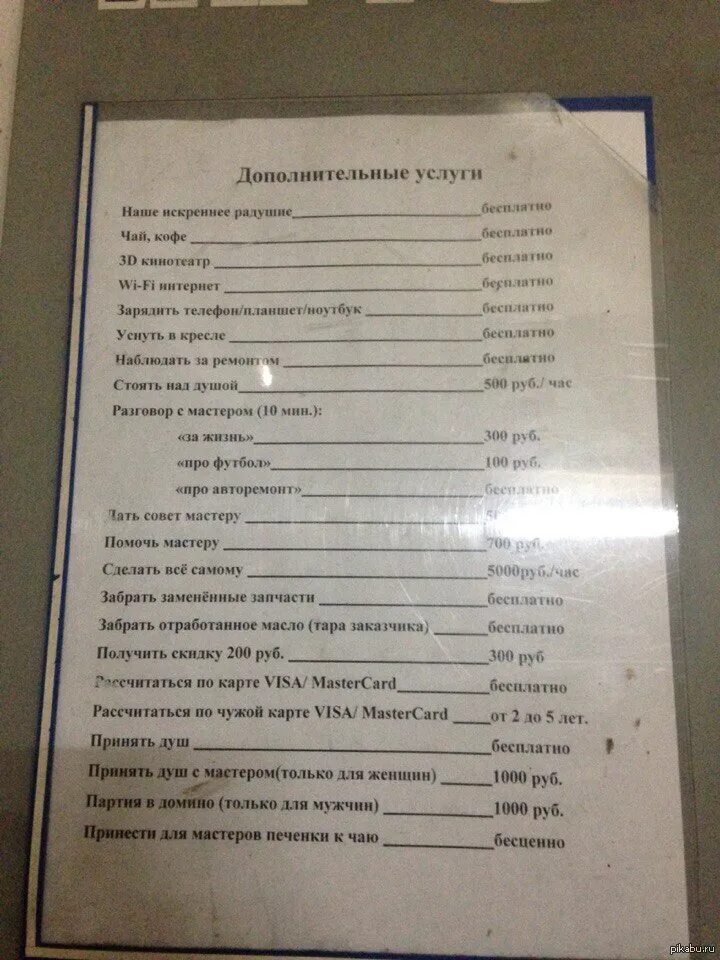 Дополнительные услуги
Наше искреннее радушие бесплатно
Чай, кофе бесплатно
3D кинотеатр бесплатно
Wi-Fi интернет бесплатно
Зарядить телефон/планшет/ноутбук бесплатно
Уснуть в кресле бесплатно
Наблюдать за ремонтом бесплатно
Стоять над душой 500 руб./ час
Разговор с мастером (10 мин.):
«за жизнь» 300 руб.
«про футбол» 100 руб.
«про авторемонт» бесплатно
Дать совет мастеру
Помочь мастеру 700 руб.
Сделать всё самому 5000руб./час
Забрать заменённые запчасти бесплатно
Забрать отработанное масло (тара заказчика) бесплатно
Получить скидку 200 руб. 300 руб
Рассчитаться по карте VISA/ MasterCard бесплатно
Рассчитаться по чужой карте VISA/ MasterCard от 2 до 5 лет.
Принять душ бесплатно
Принять душ с мастером(только для женщин) 1000 руб.
Партия в домино (только для мужчин) 1000 руб.
Принести для мастеров печенки к чаю бесценно
pikabu.ru